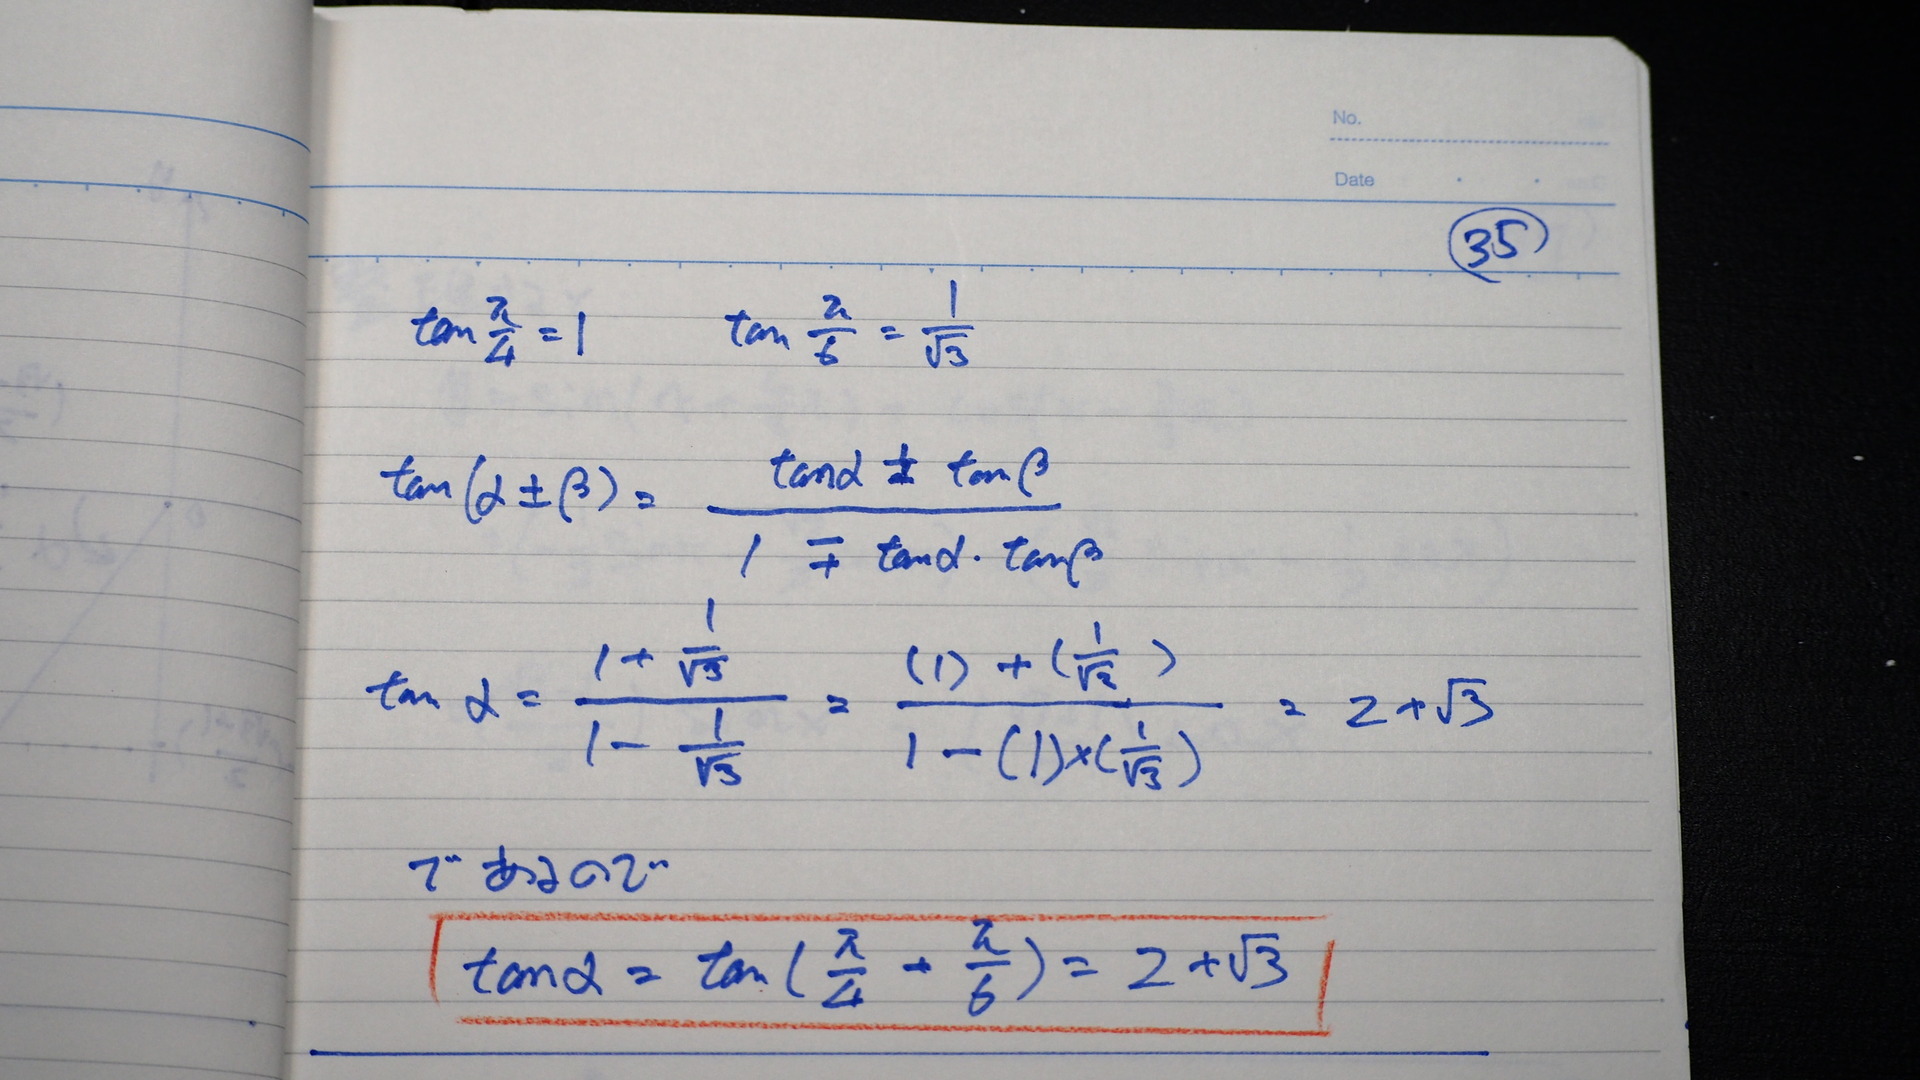 No.
Date
35
tan π/4 = 1 tan π/6 = 1/√3
tan(α ± β) = (tanα ± tanβ)/(1 ∓ tanα · tanβ)
tan α = (1 + 1/√3)/(1 - 1/√3) = ((1) + (1/√3))/(1 - (1)×(1/√3)) = 2 + √3
で あるので
tanα = tan(π/4 + π/6) = 2 + √3